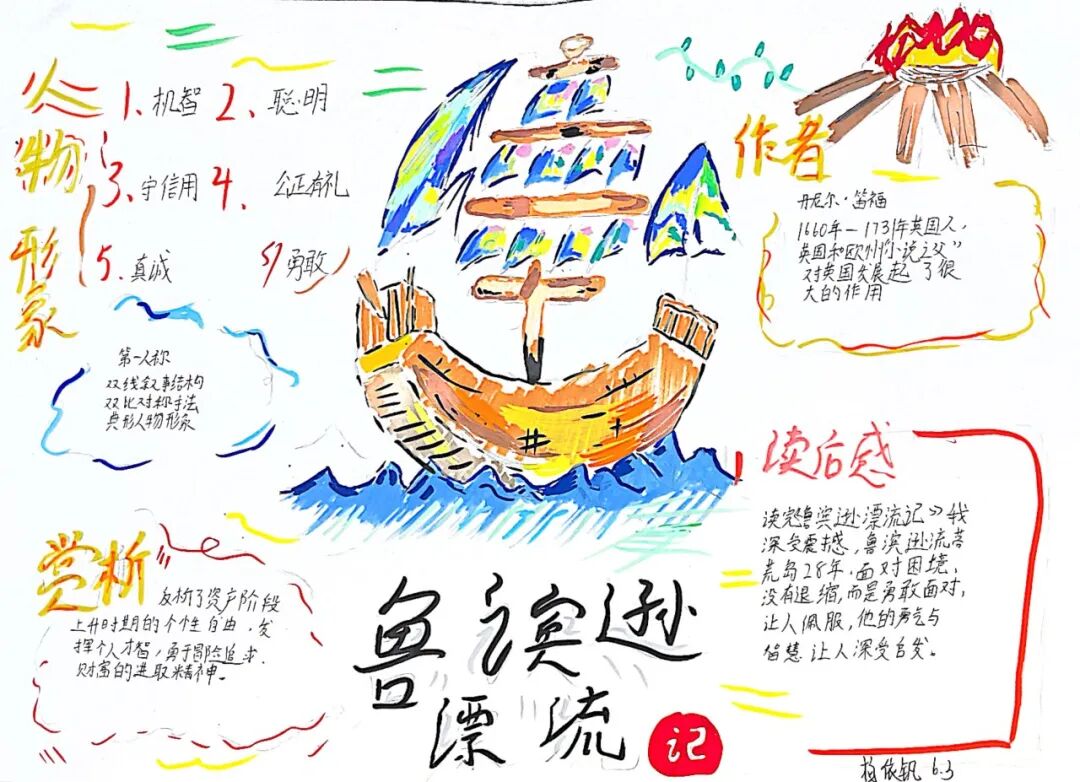 人物形象
1. 机智 2. 聪明
3. 守信用 4. 公正有礼
5. 真诚 勇敢
第一人称
双线叙事结构
双比对称手法
典形人物形象
赏析
反析了资产阶段
上升时期的个性自由，发
挥个人才智，勇于冒险追求
财富的进取精神。
作者
丹尼尔·笛福
1660年—1731年英国人，
英国和欧州"小说之父"
对英国发展起了很
大的作用
读后感
读完鲁滨逊漂流记》我
深受震撼，鲁滨逊流落
荒岛28年，面对困境，
没有退缩，而是勇敢面对，
让人佩服，他的勇气与
智慧 让人深受启发。
鲁滨逊
漂流记
6.3